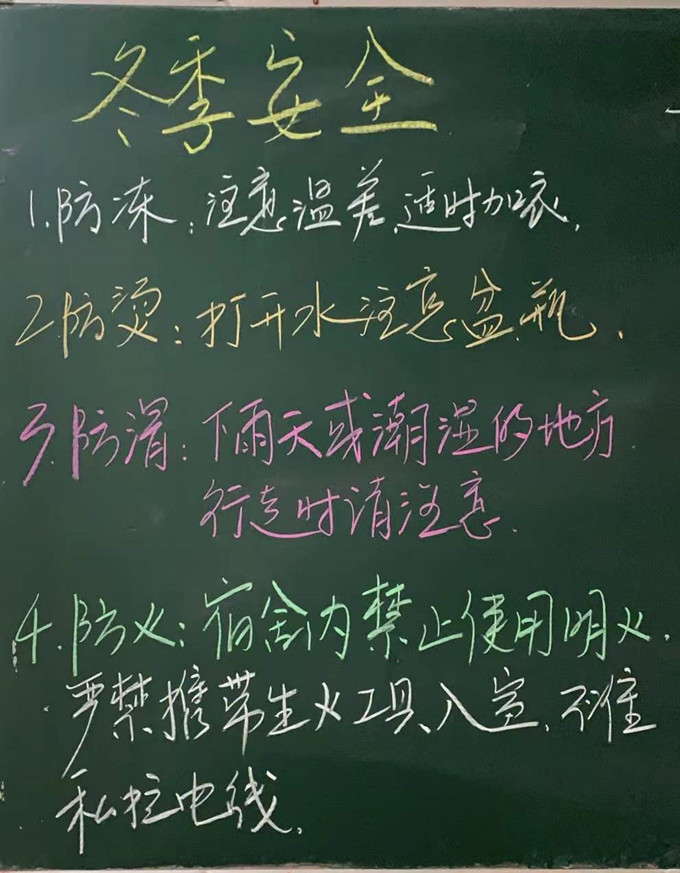 冬季安全
1.防冻：注意温差，适时加衣。
2.防烫：打开水注意盆、瓶。
3.防滑：下雨天或潮湿的地方
行走时请注意。
4.防火：宿舍内禁止使用明火，
严禁携带生火工具入室，不准
私拉电线。